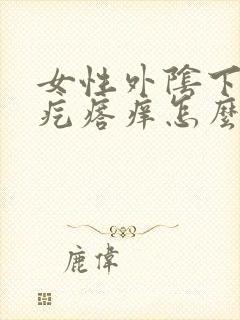 女性外陰下
疙瘩痒怎麼
鹿偉